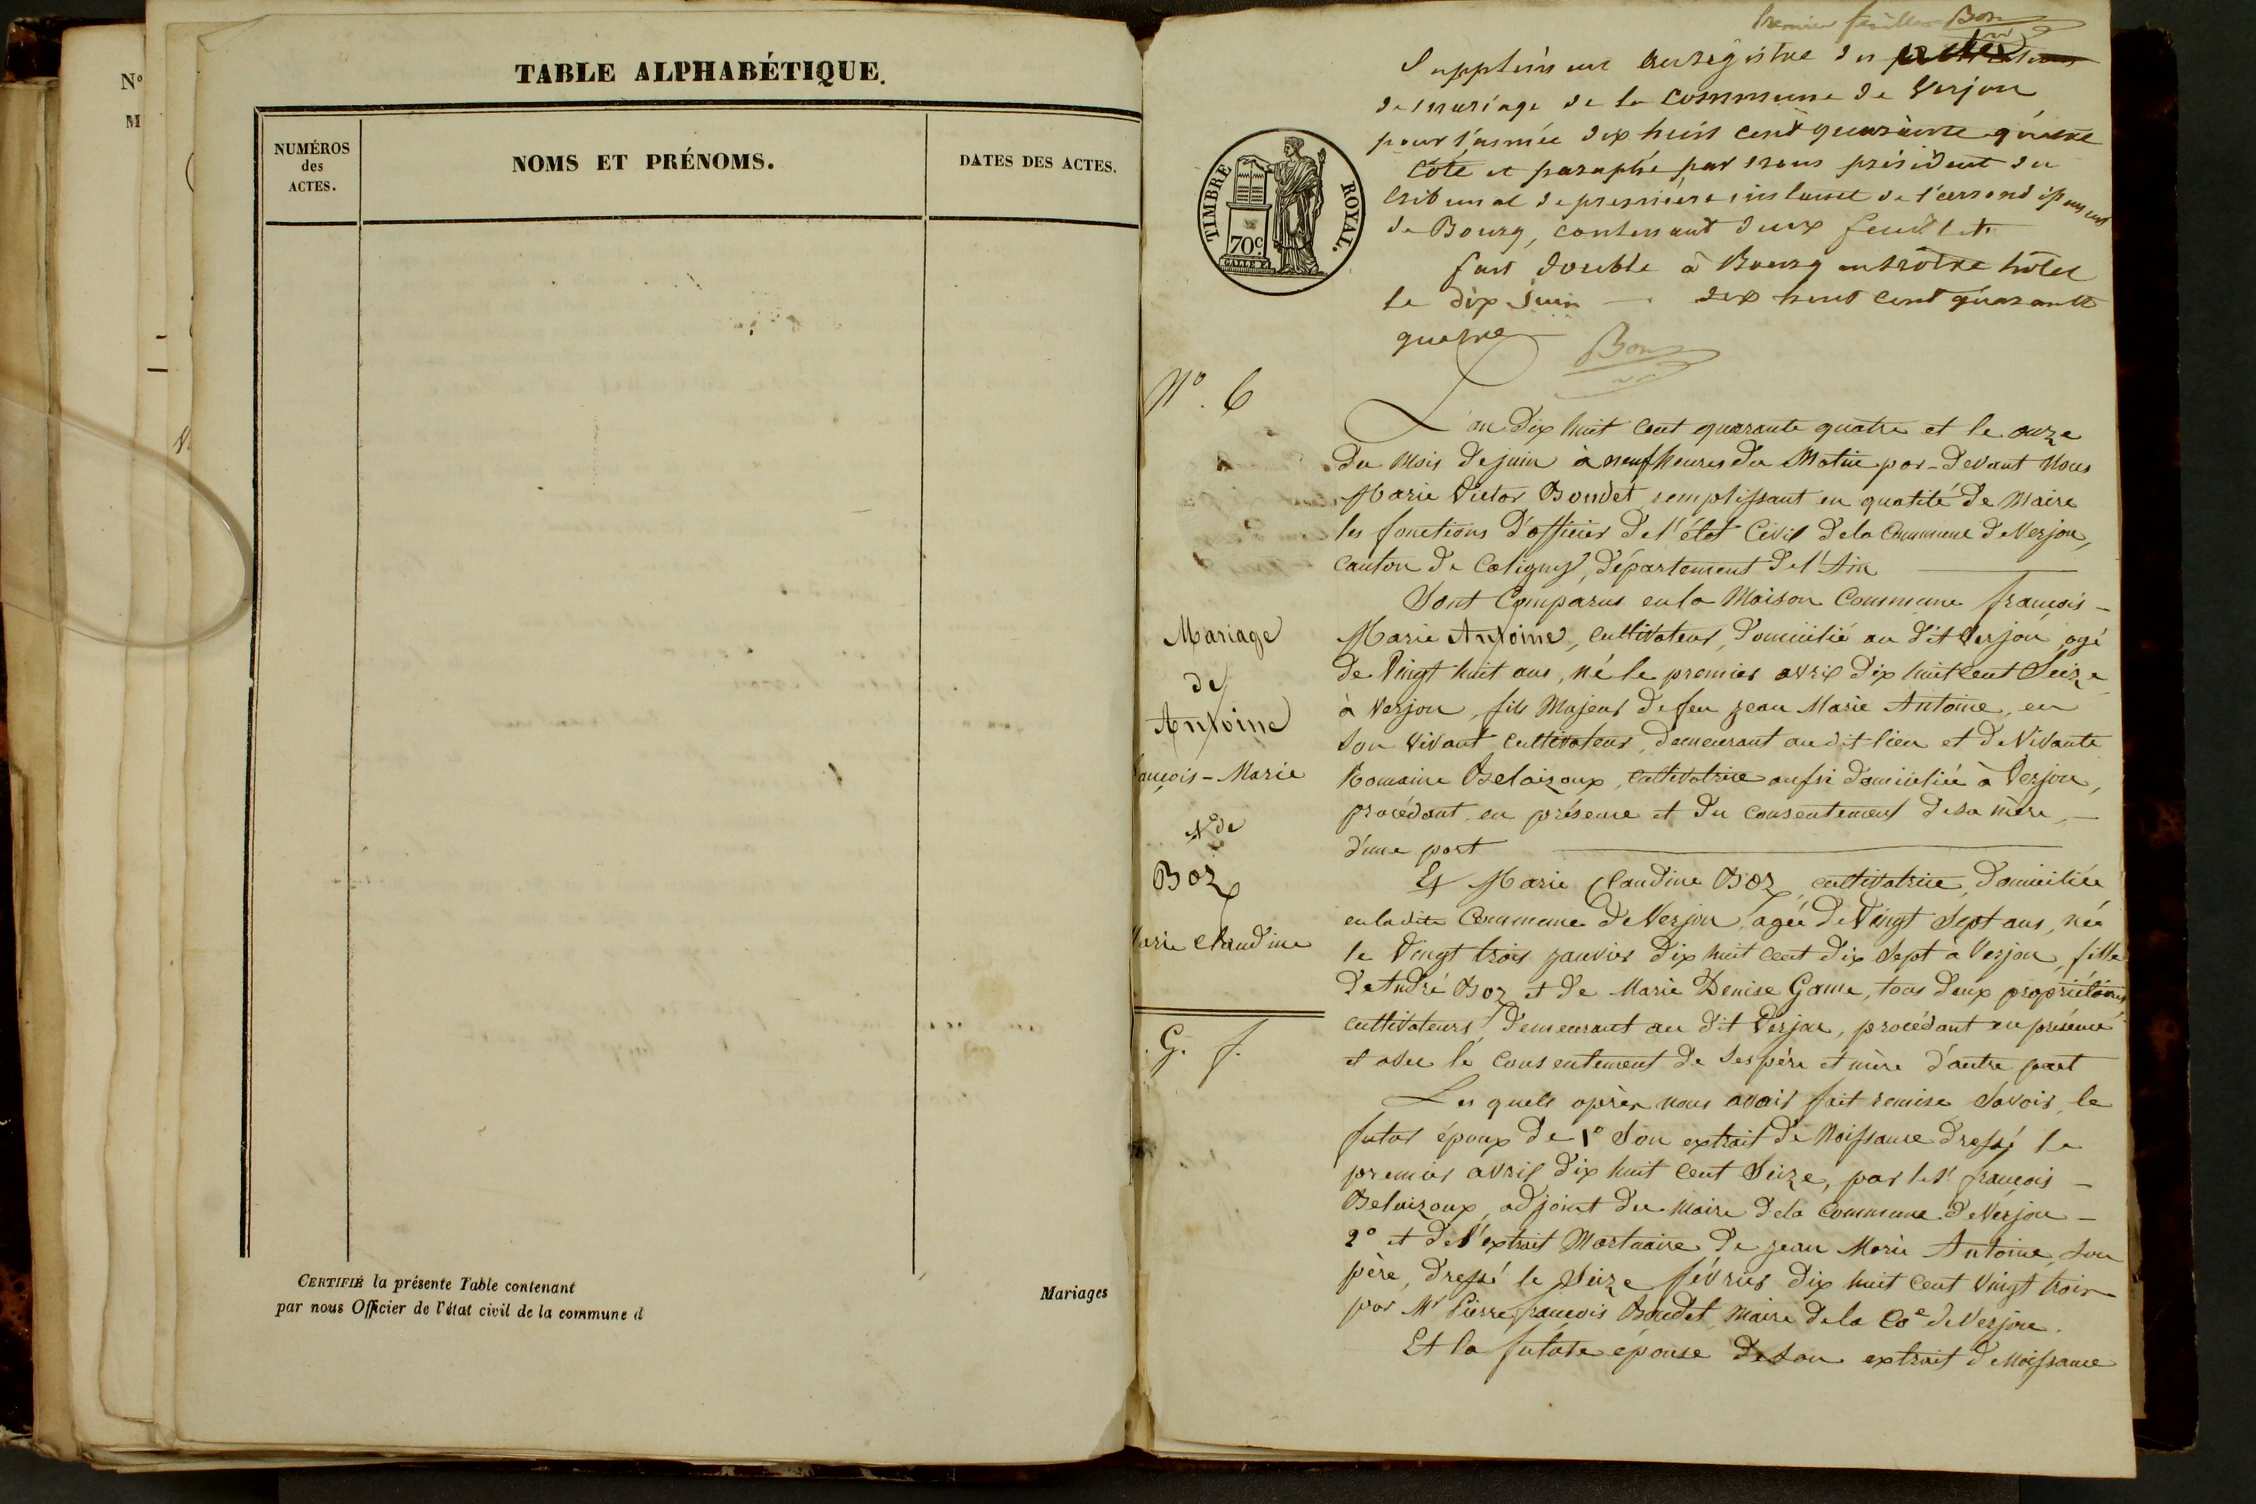 N°
M
TABLE ALPHABÉTIQUE.
NUMÉROS
des
ACTES.
NOMS ET PRÉNOMS.
DATES DES ACTES.
CERTIFIÉ la présente Table contenant
par nous Officier de l'état civil de la commune d
Mariages
premier feuillet Bon
Supplément au registre des
de mariage de la commune de Verjon
pour l'année dix huit cent quarante quatre
côté et paraphé par nous président du
tribunal de première instance de l'arrondissement
de Bourg, contenant deux feuillets
fait double à Bourg en notre hôtel
le dix Juin dix huit cent quarante
quatre
Bon
TIMBRE ROYAL.
70c
N°. 6
L'an dix huit cent quarante quatre et le onze
du mois de juin à neuf heures du Matin par-devant Nous
Marie Victor Bondet remplissant en qualité de Maire
les fonctions d'officier de l'état Civil de la Commune de Verjon,
Canton de Coligny, département de l'Ain
Sont Comparus en la Maison Commune françois-
Marie Antoine, cultivateur, domicilié au dit Verjon, agé
de Vingt huit ans, né le premier avril dix huit cent Seize
à Verjon, fils Majeur de feu jean Marie Antoine, en
son vivant cultivateur, demeurant audit lieu et de Vivante
Romaine Belaizoux, cultivatrice aussi domiciliée à Verjon,
procédant en présence et du consentement de sa mère, -
d'une part
Et Marie Claudine Boz, cultivatrice, domiciliée
en la dite Commune de Verjon, agée de Vingt Sept ans, née
le Vingt trois janvier dix huit cent dix Sept à Verjon, fille
de André Boz et de Marie Denise Game, tous deux propriétaires
cultivateurs, demeurant au dit Verjon, procédant en présence
et avec le consentement de ses père et mère d'autre part
Les quels après nous avoir fait remise Savoir, le
futur époux de 1° Son extrait de Naissance dressé le
premier avril dix huit cent Seize, par le Sr françois -
Belaizoux, adjoint du maire de la Commune de Verjon -
2° et de l'extrait Mortuaire de jean Marie Antoine, son
père, dressé le Seize février dix huit cent vingt trois
par Mr Pierre françois Bondet Maire de la Coe de Verjon.
Et la future épouse de son extrait de Naissance
Mariage
de
Antoine
ançois-Marie
&de
Boz
Marie Claudine
G. f.